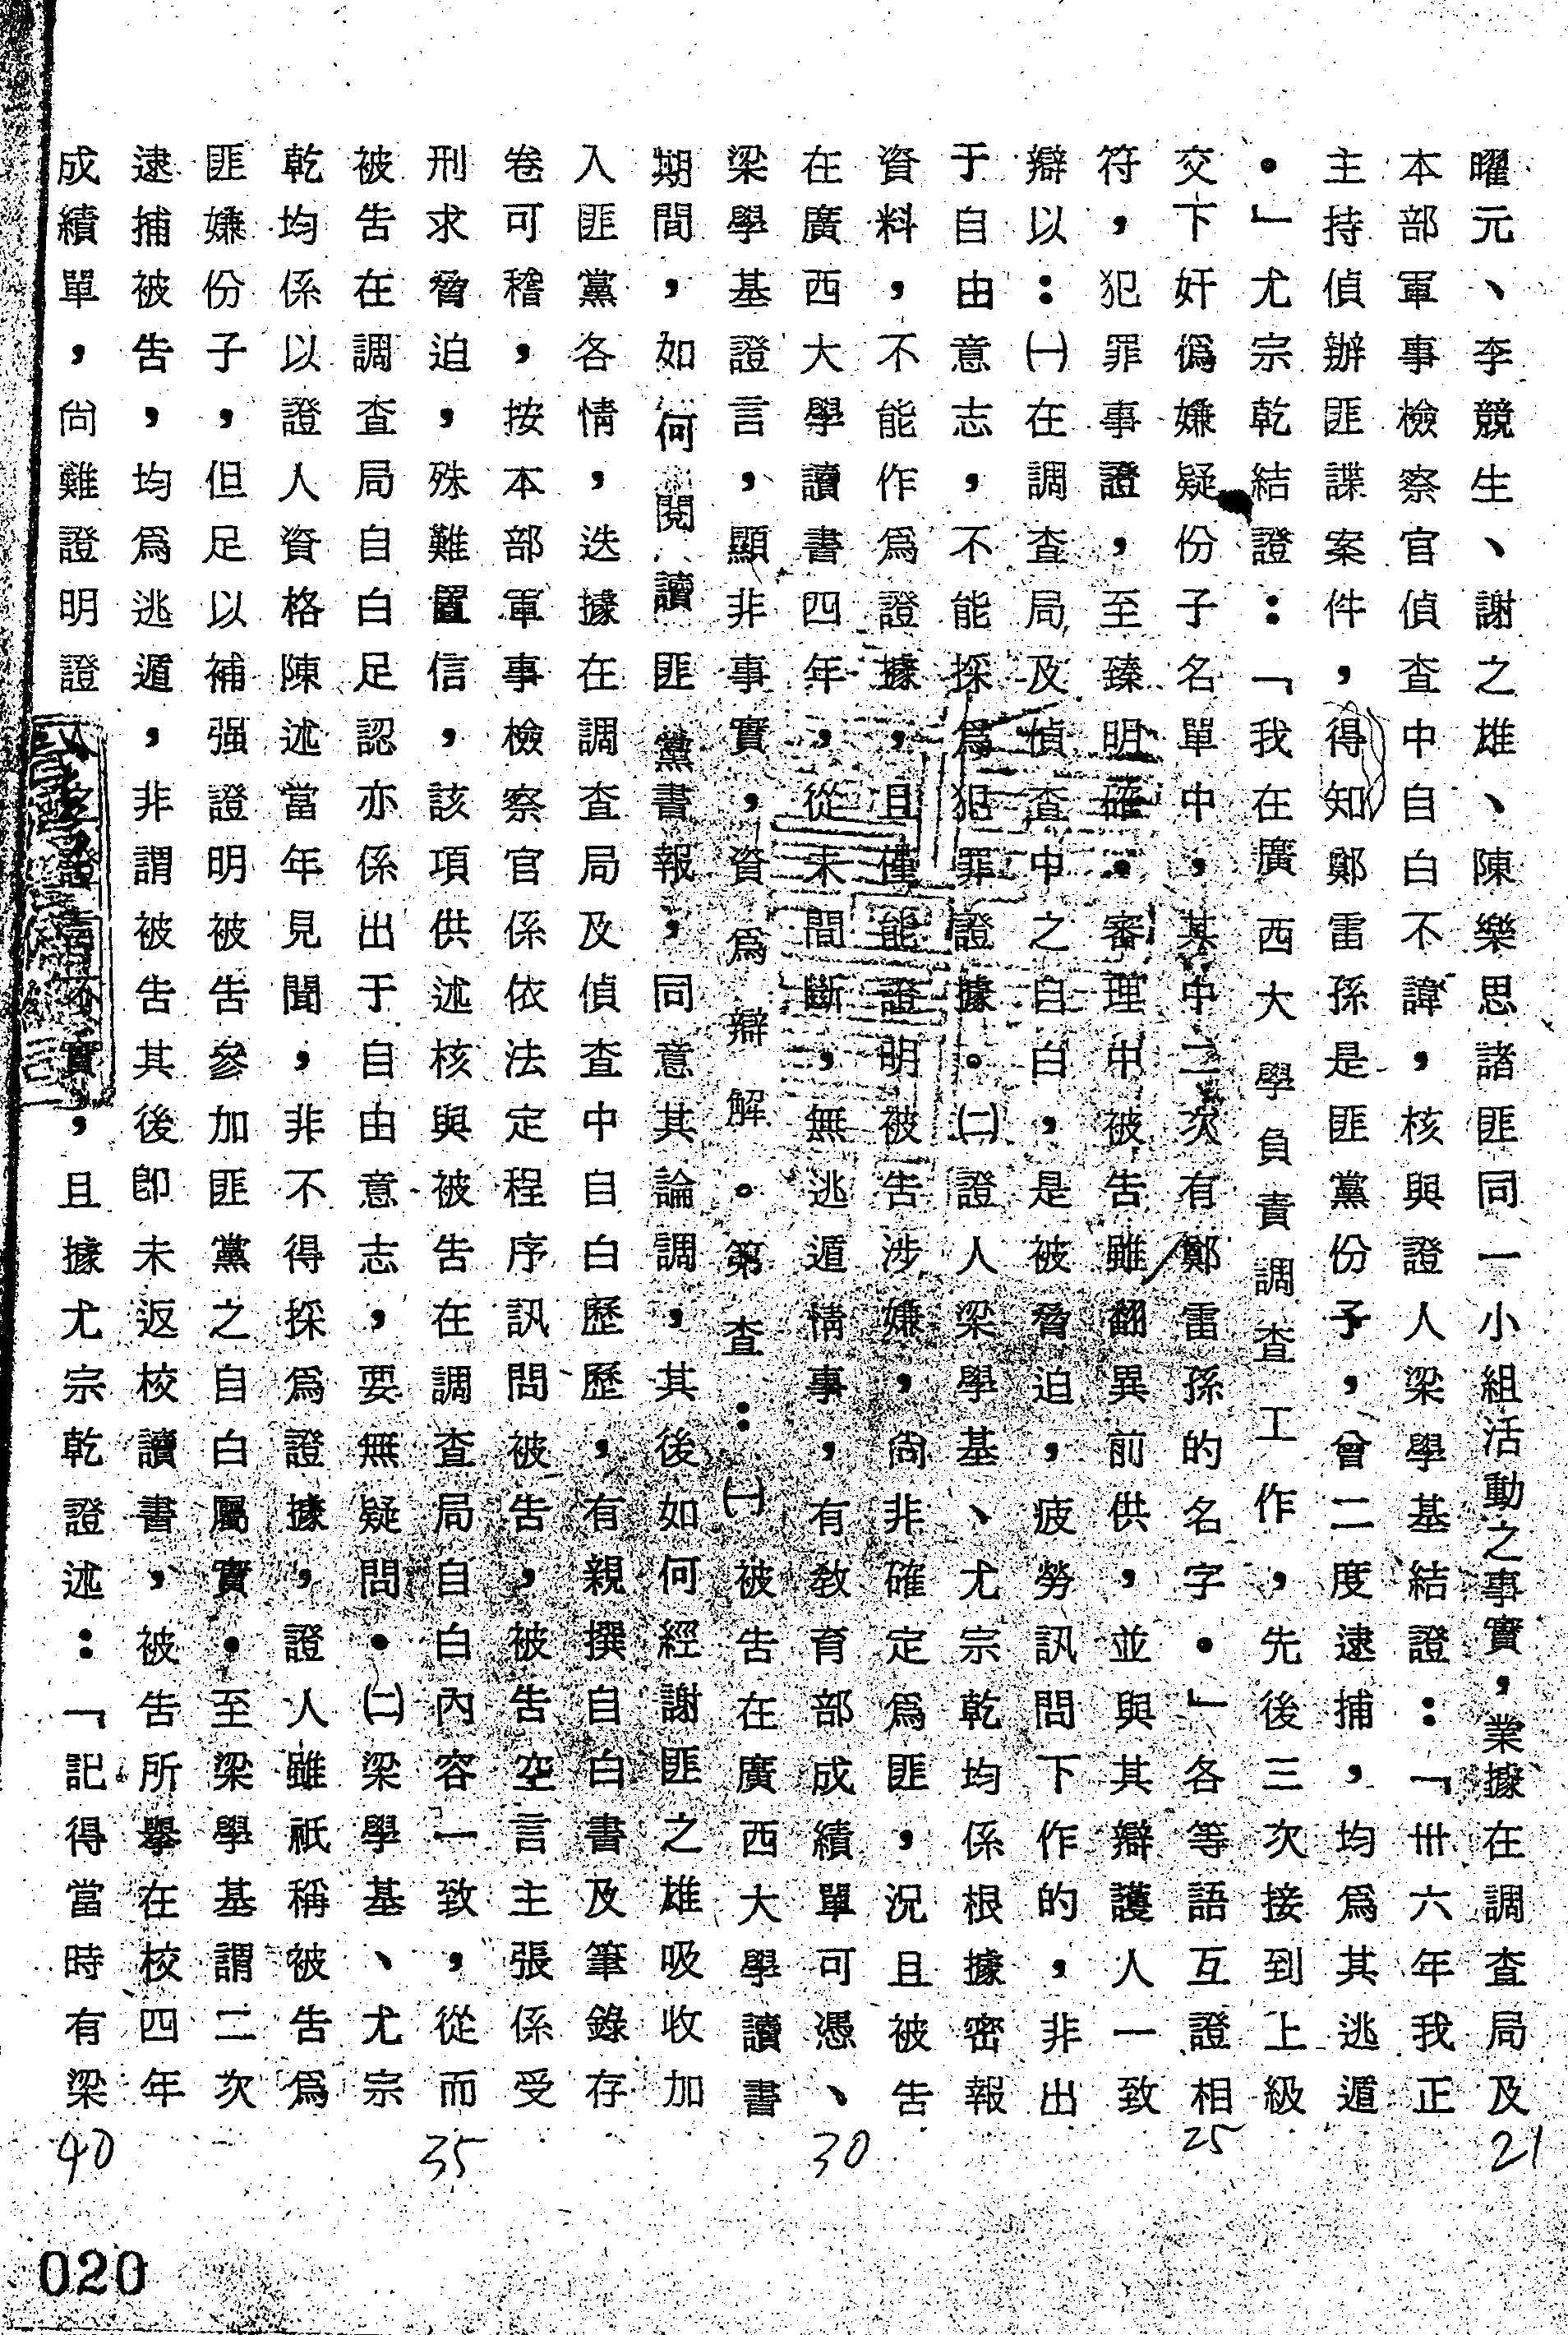 曜元、李競生、謝之雄、陳樂思諸匪同一小組活動之事實，業據在調查局及
本部軍事檢察官偵查中自白不諱，核與證人梁學基結證：「卅六年我正
主持偵辦匪諜案件，得知鄭雷孫是匪黨份子，曾二度逮捕，均爲其逃遁
。」尤宗乾結證：「我在廣西大學負責調查工作，先後三次接到上級
交下奸僞嫌疑份子名單中，其中二次有鄭雷孫的名字。」各等語互證相
符，犯罪事證，至臻明確。審理中被告雖翻異前供，並與其辯護人一致
辯以：㈠在調查局及偵查中之自白，是被脅迫，疲勞訊問下作的，非出
于自由意志，不能採爲犯罪證據。㈡證人梁學基、尤宗乾均係根據密報
資料，不能作爲證據，且僅能證明被告涉嫌，尚非確定爲匪，況且被告
在廣西大學讀書四年，從未間斷，無逃遁情事，有教育部成績單可憑、
梁學基證言，顯非事實，資爲辯解。第查：㈠被告在廣西大學讀書
期間，如何閱讀匪黨書報，同意其論調，其後如何經謝匪之雄吸收加
入匪黨各情，迭據在調查局及偵查中自白歷歷，有親撰自白書及筆錄存
卷可稽，按本部軍事檢察官係依法定程序訊問被告，被告空言主張係受
刑求脅迫，殊難置信，該項供述核與被告在調查局自白內容一致，從而
被告在調查局自白足認亦係出于自由意志，要無疑問。㈡梁學基、尤宗
乾均係以證人資格陳述當年見聞，非不得採爲證據，證人雖祇稱被告爲
匪嫌份子，但足以補强證明被告參加匪黨之自白屬實。至梁學基謂二次
逮捕被告，均爲逃遁，非謂被告其後卽未返校讀書，被告所舉在校四年
成績單，尚難證明證人之證言不實，且據尤宗乾證述：「記得當時有梁
21
25
30
35
40
020